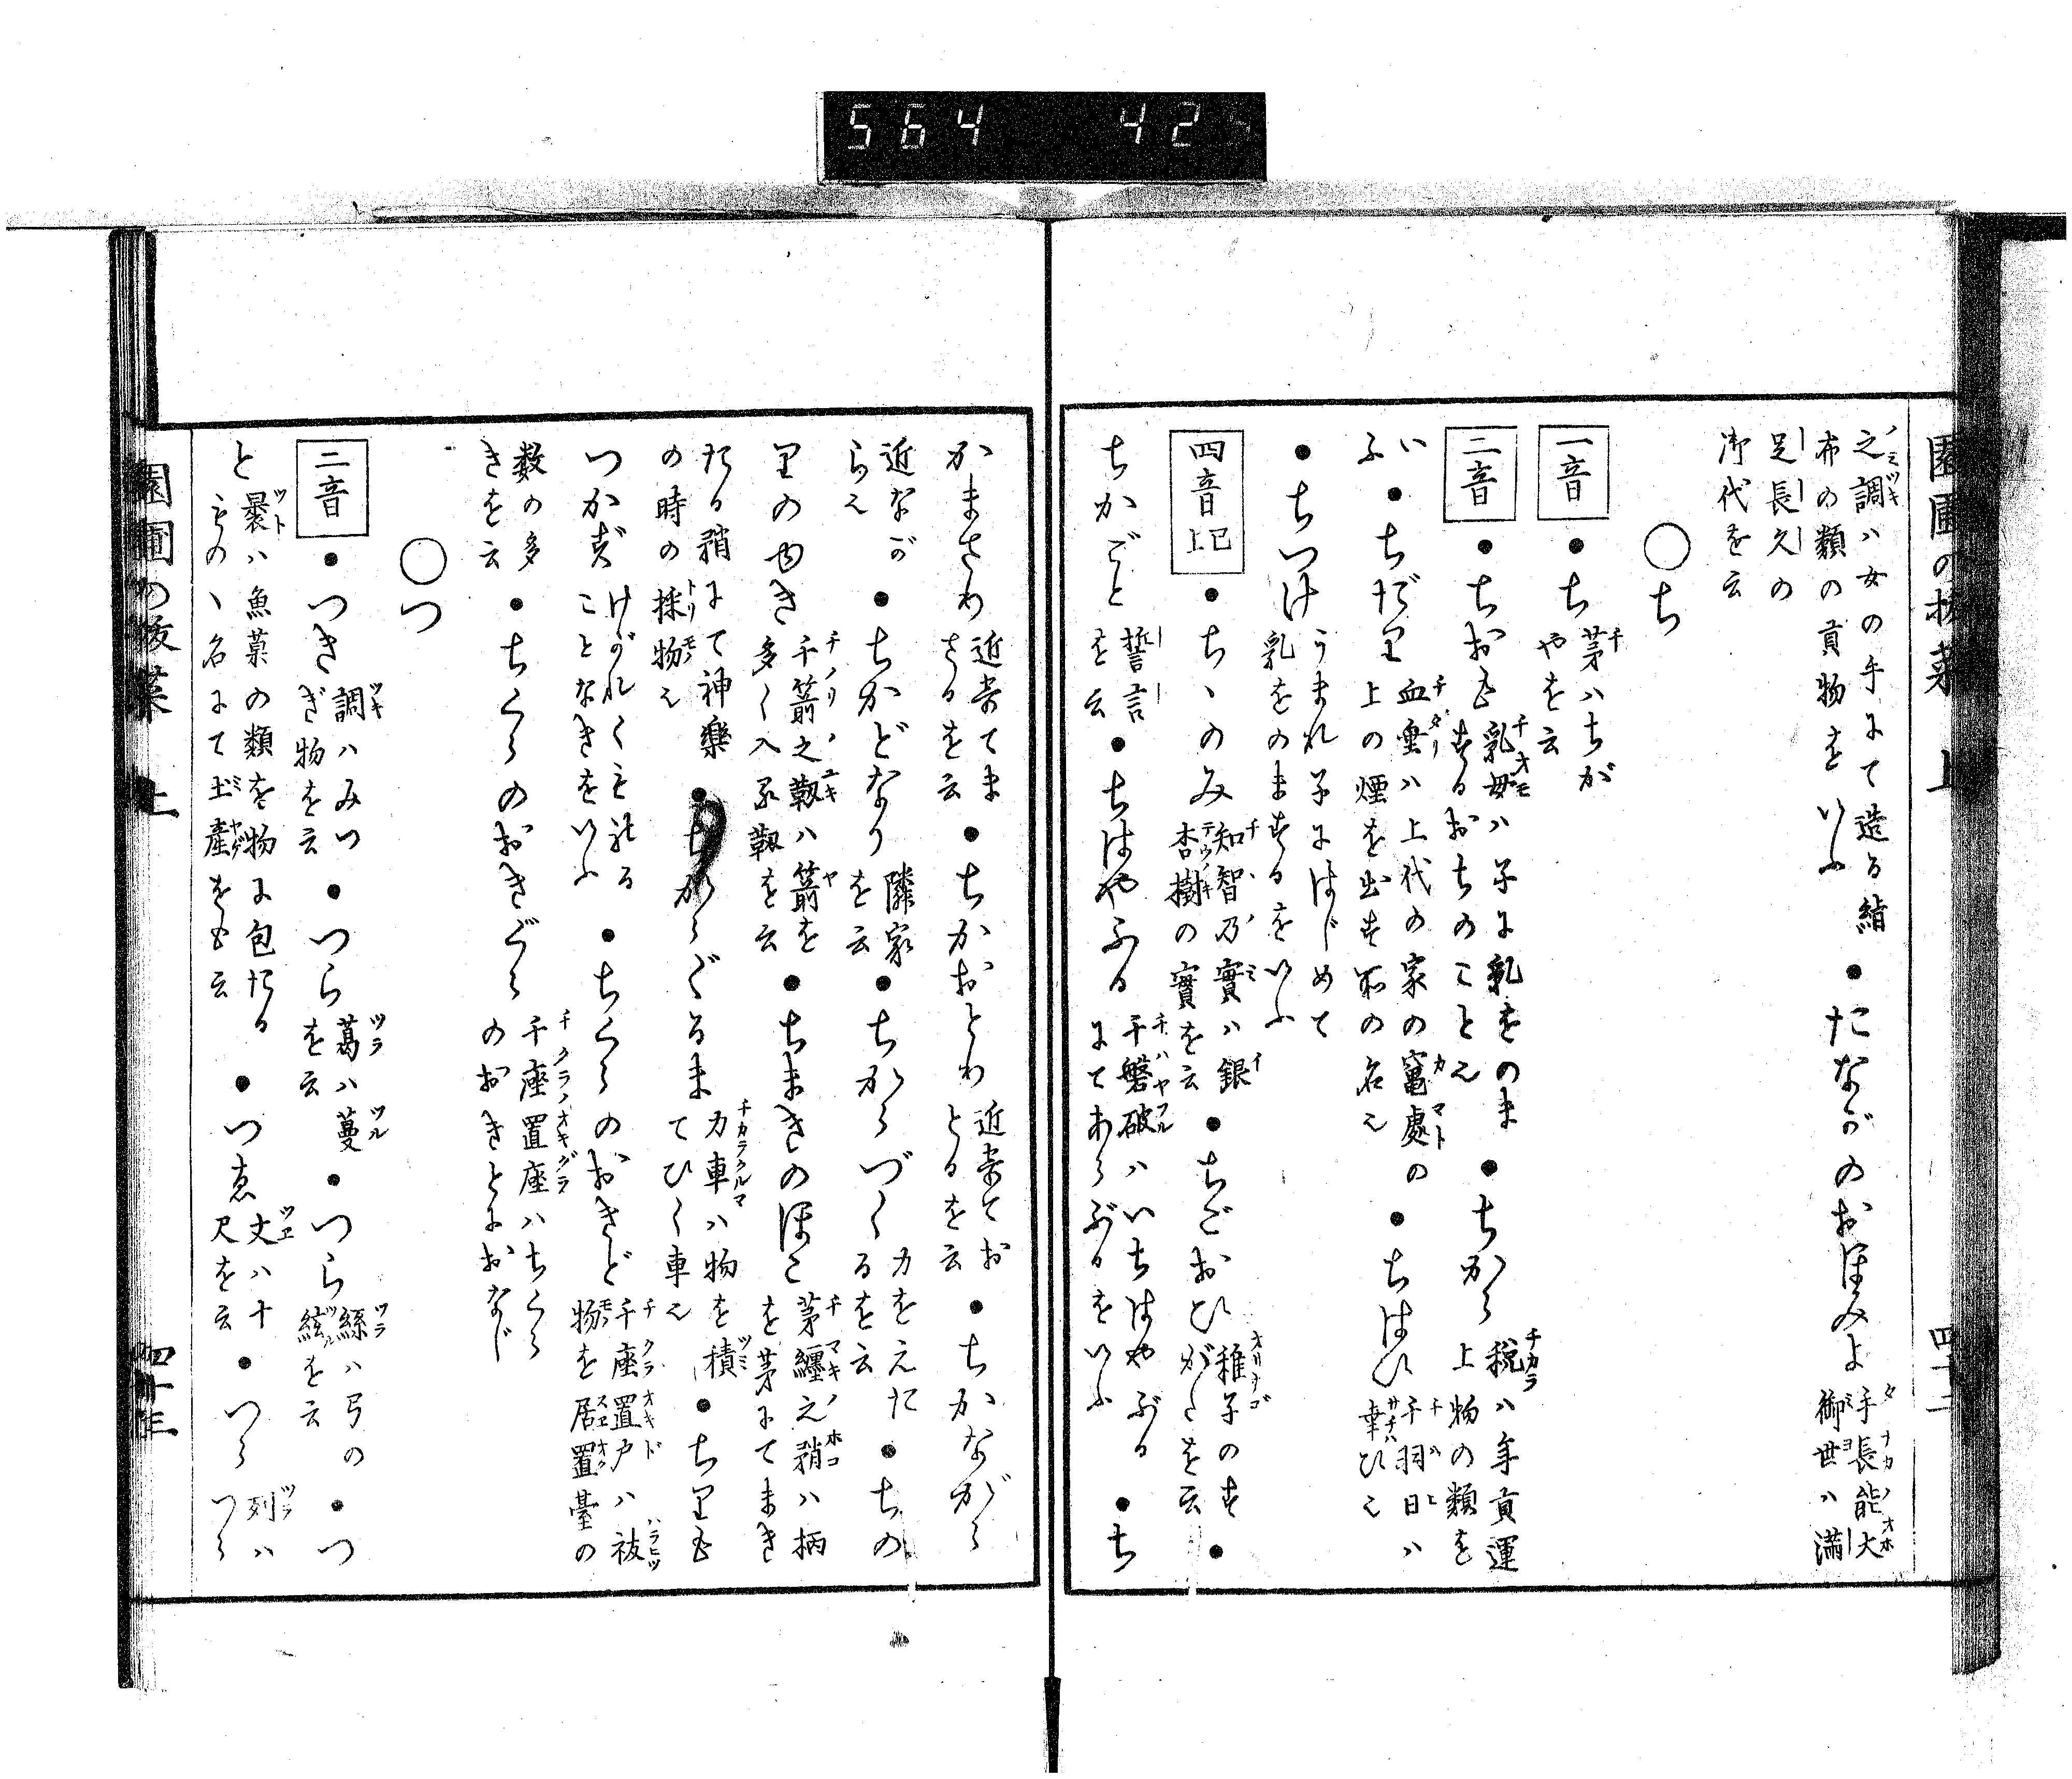 564 42
園圃の抜菜 上 四十二
之調ハ女の手にて造る絹
布の類の貢物をいふ
●たながのおほみよ
手長能大
御世ハ満
足長久の
御代を云
○ち
一音 ●ち
茅ハちが
やを云
二音 ●ちおも
乳母ハ子に乳をのま
するおちのことえ
●ちから
税ハ年貢運
上物の類を
いふ
●ちだり
血垂ハ上代の家の竈處の
上の煙を出す所の名え
●ちはひ
千羽日ハ
幸ひえ
●ちつけ
うまれ子にはじめて
乳をのまするをいふ
四音已上 ●ちゝのみ
知智乃實ハ銀
杏樹の實を云
●ちごおひ
稚子のす
がたを云
●
ちかごと
誓言
を云
●ちはやふる
千磐破ハいちはやぶる
にてあらぶるをいふ
●ち
かまさり
近寄てま
さるを云
●ちかおとり
近寄てお
とるを云
●ちかながら
近なが
らえ
●ちかどなり
隣家
を云
●ちからづくる
力をえた
るを云
●ちの
りのゆき
千箭之靫ハ箭を
多く入る靫を云
●ちまきのほこ
茅纏之矟ハ柄
を茅にてまき
たる矟にて神樂
の時の採物え
●ちからぐるま
力車ハ物を積
てひく車え
●ちりも
つかず
けがれくもれる
ことなきをいふ
●ちくらのおきど
千座置戸ハ祓
物を居置臺の
数の多
きを云
●ちくらのおきぐら
千座置座ハちくら
のおきとにおなじ
○つ
二音 ●つき
調ハみつ
ぎ物を云
●つら
葛ハ蔓
を云
●つら
絲ハ弓の
絃を云
●つ
と
裹ハ魚菓の類を物に包たる
ものゝ名にて土産をも云
●つゑ
丈ハ十
尺を云
●つら
列ハ
つら
園圃の抜菜 上 四十三